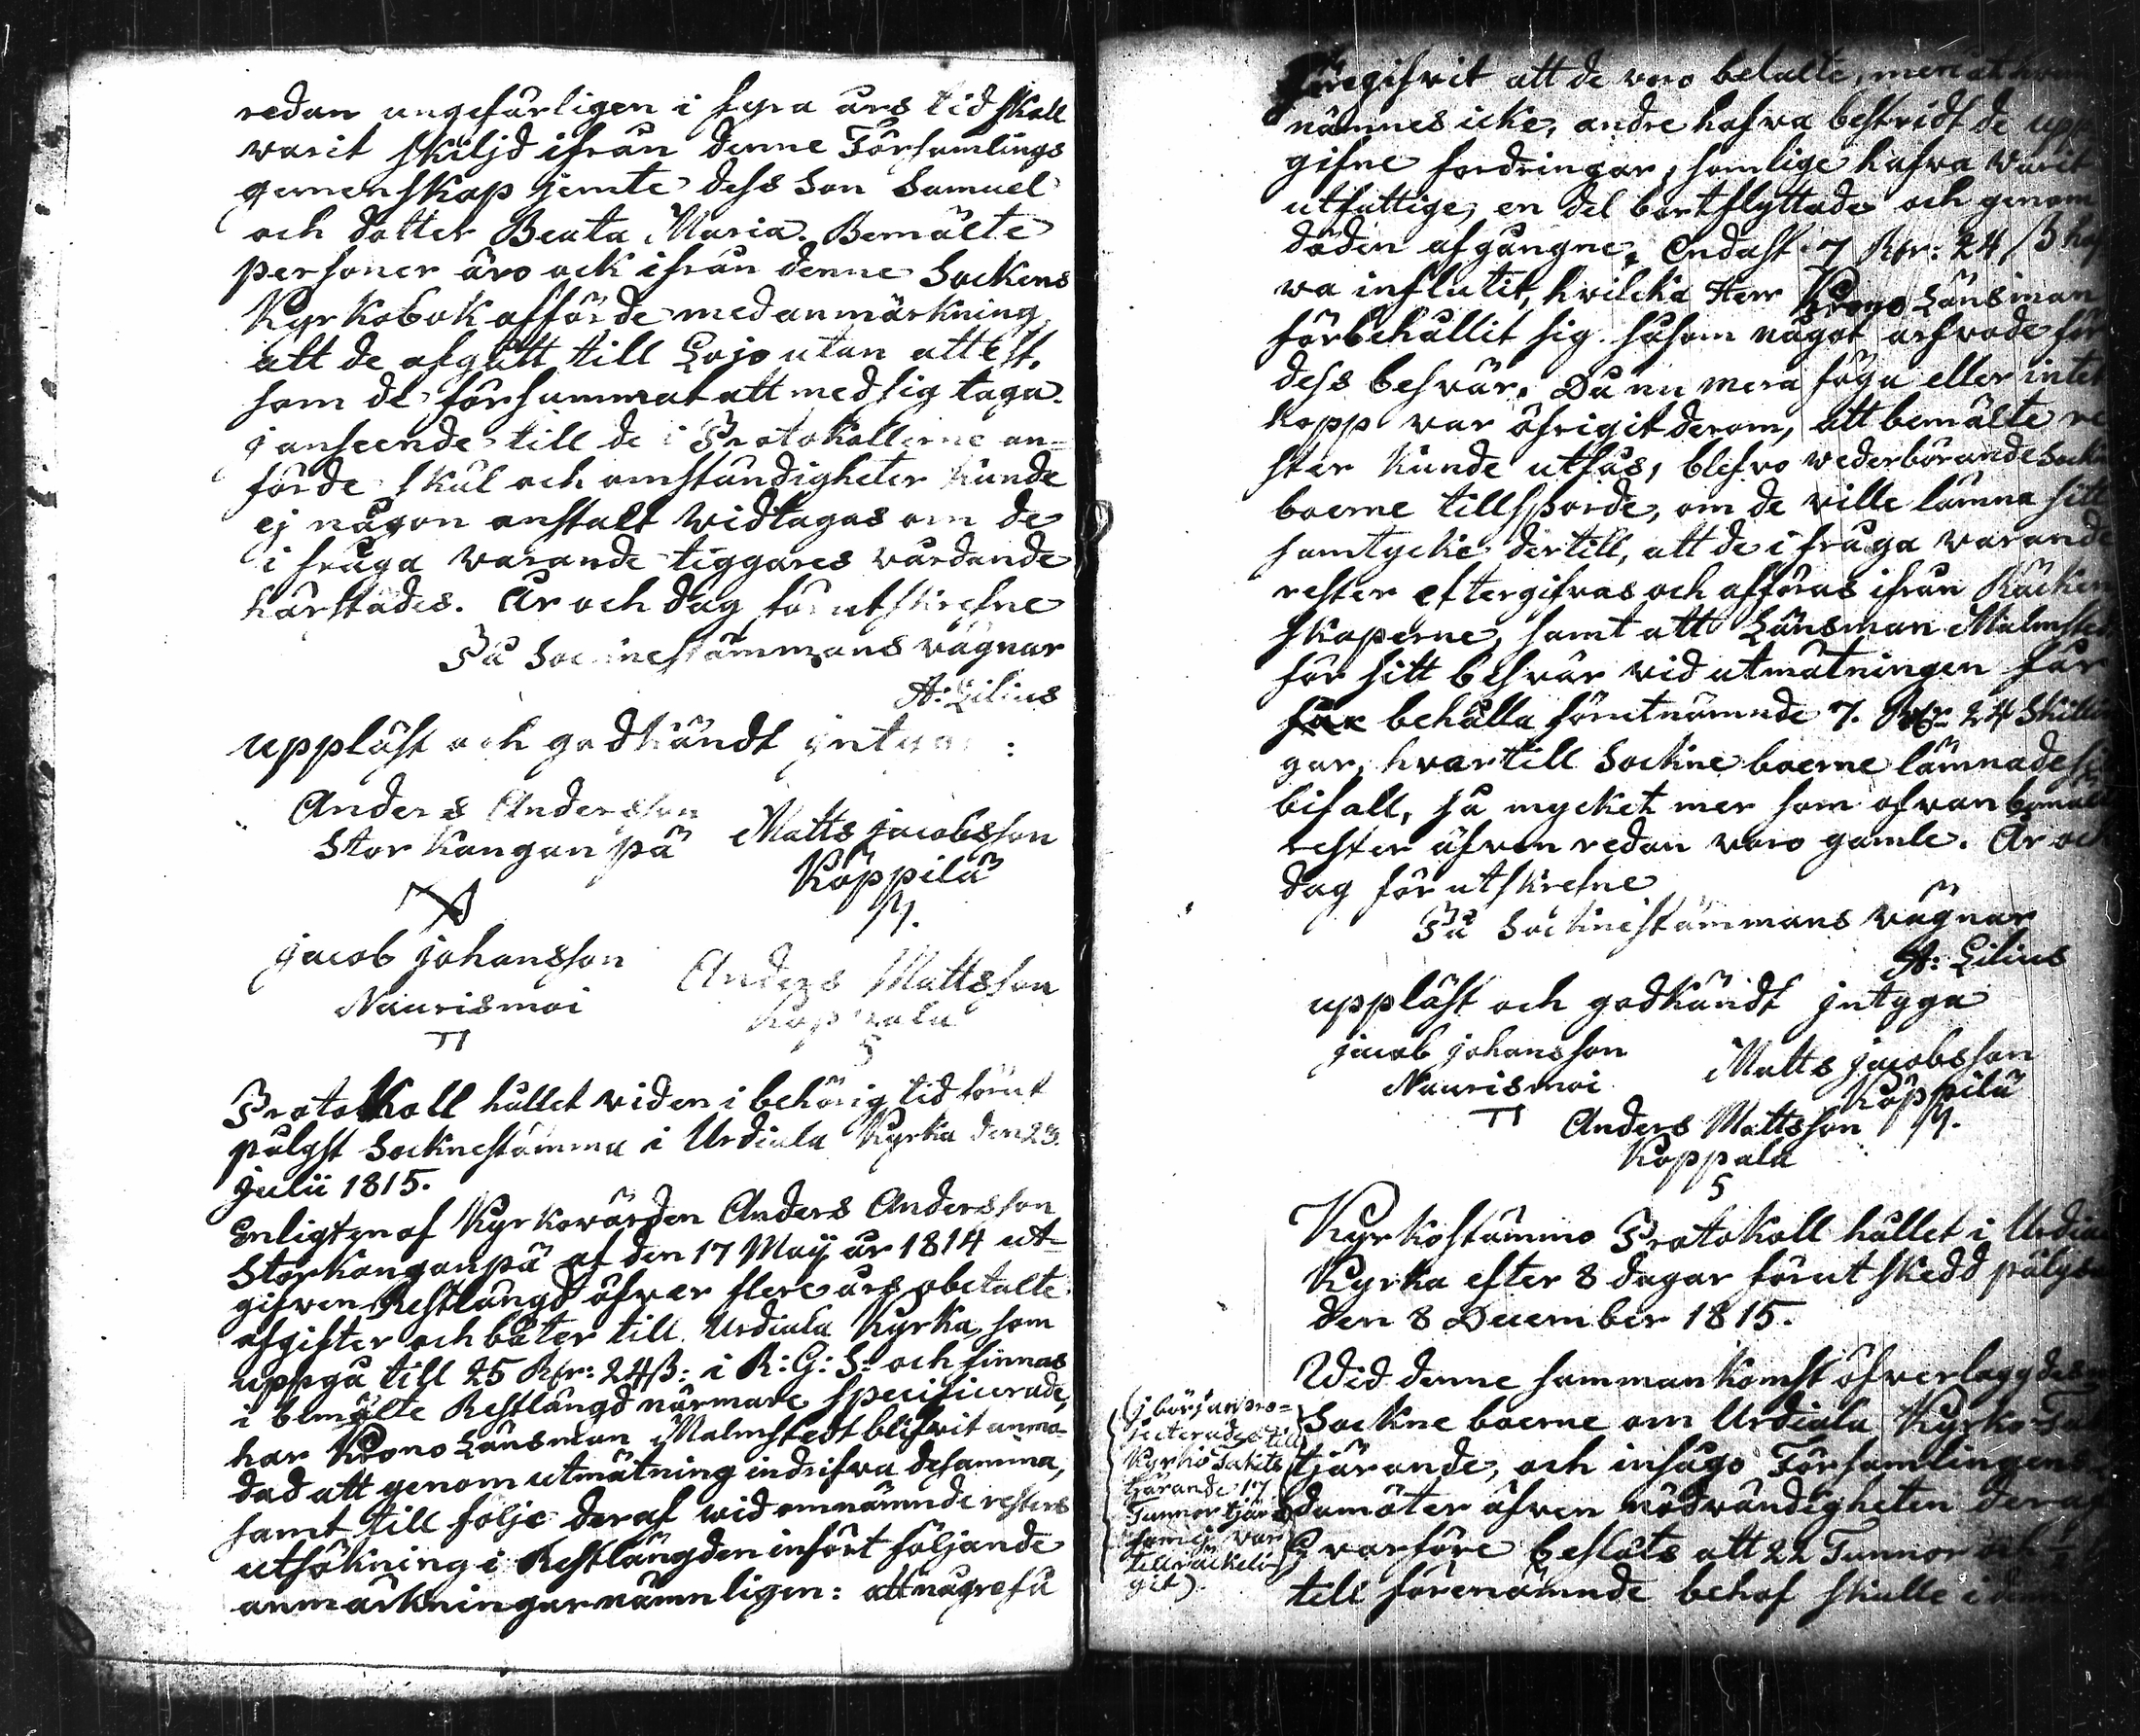 redan ungefärligen i fyra års tid skall
warit skiljd ifrån denne Församlings
gemenskap jemte dess Son Samuel
och dotter Beata Maria. Bemälte
personer äro ock ifrån denne Sockens
Kyrkobok afförde med anmärkning,
att de afgått till Lojo utan attest,
som de försummat att med sig taga.
j anseende till de i Protokollerne an-
förde skäl och omständigheter kunde
ej någon anstalt widtagas om de
i fråga warande tiggares wårdande
härstädes. År och dag förutskrefne
På Socknestämmans wägnar
A: Lilius
uppläst och godkändt jntyga:
Anders Andersson
Storkanganpä
Matts jacobsson
Köppilä
jacob johansson
Naurismoi
Anders Mattsson
Koppala
Protokoll hållet wid en i behörig tid förut
pålyst Socknestämma i Urdiala Kyrka den 23.
Julii 1815.
Enligt en af Kyrkowärden Anders Andersson
Storkanganpä af den 17 Maij år 1814 ut-
gifwen Restlängd öfwer flere års obetalte
afgifter och böter till Urdiala Kyrka, som
uppgå till 25 Rr: 24 ß: i R: G: S: och finnas
i bemälte Restlängd närmare specificerade,
har Krono Länsman Malmstedt blifwit anmo-
dad att genom utmätning indrifwa desamma,
samt till följe deraf wid omnämnde resters
utsökning i Restlängden infört följande
anmärkningar nämnligen: att någre få
föregifwit att de woro betalte, men åt hwem
nämnes icke, andre hafwa bestridt de upp-
gifne fordringar, somlige hafwa warit
utfattige, en del bortflyttade och genom
döden afgångne. Endast 7 Rr: 24 ß haf
wa influtit, hwilcka Herr Krono Länsman
förbehållit sig såsom något arfwode för
dess beswär. Då nu mera föga eller intet
hopp war öfrigit derom, att bemälte re
ster kunde utfås, blefwo wederbörande Sockne
boerne tillsporde, om de wille lämna sitt
samtycke dertill, att de i fråga warande
rester eftergifwas och afföras ifrån Räcken
skaperne, samt att Länsman Malmstedt
för sitt beswär wid utmätningen får
får behålla förutnämnde 7. Rr 24 Skillin
gar, hwartill Sockneboerne lämnade sitt
bifall, så mycket mer som ofwanbemälte
rester äfwen redan woro gamle. År och
dag förutskrefne
På Socknestämmans wägnar
A: Lilius
uppläst och godkändt jntyga
jacob johansson
Naurismoi
Matts jacobsson
Köppilä
Anders Mattsson
Koppala
Kyrkostämmo Protokoll hållet i Urdiala
Kyrka efter 8 dagar förut skedd pålysning
den 8 December 1815.
Wid denne sammankomst öfwerlaggdes
Sockneboerne om Urdiala Kyrko Ta
tjärande, och insågo Församlingens
ledamöter äfwen nödwändigheten deraf
hwarföre beslöts att 22 Tunnor
till förenämnde behof skulle i
(j början pro-
jecterades till
Kyrko Takets
tjärande 17
Tunnor tjära
som ej war
tillräckeli-
git)